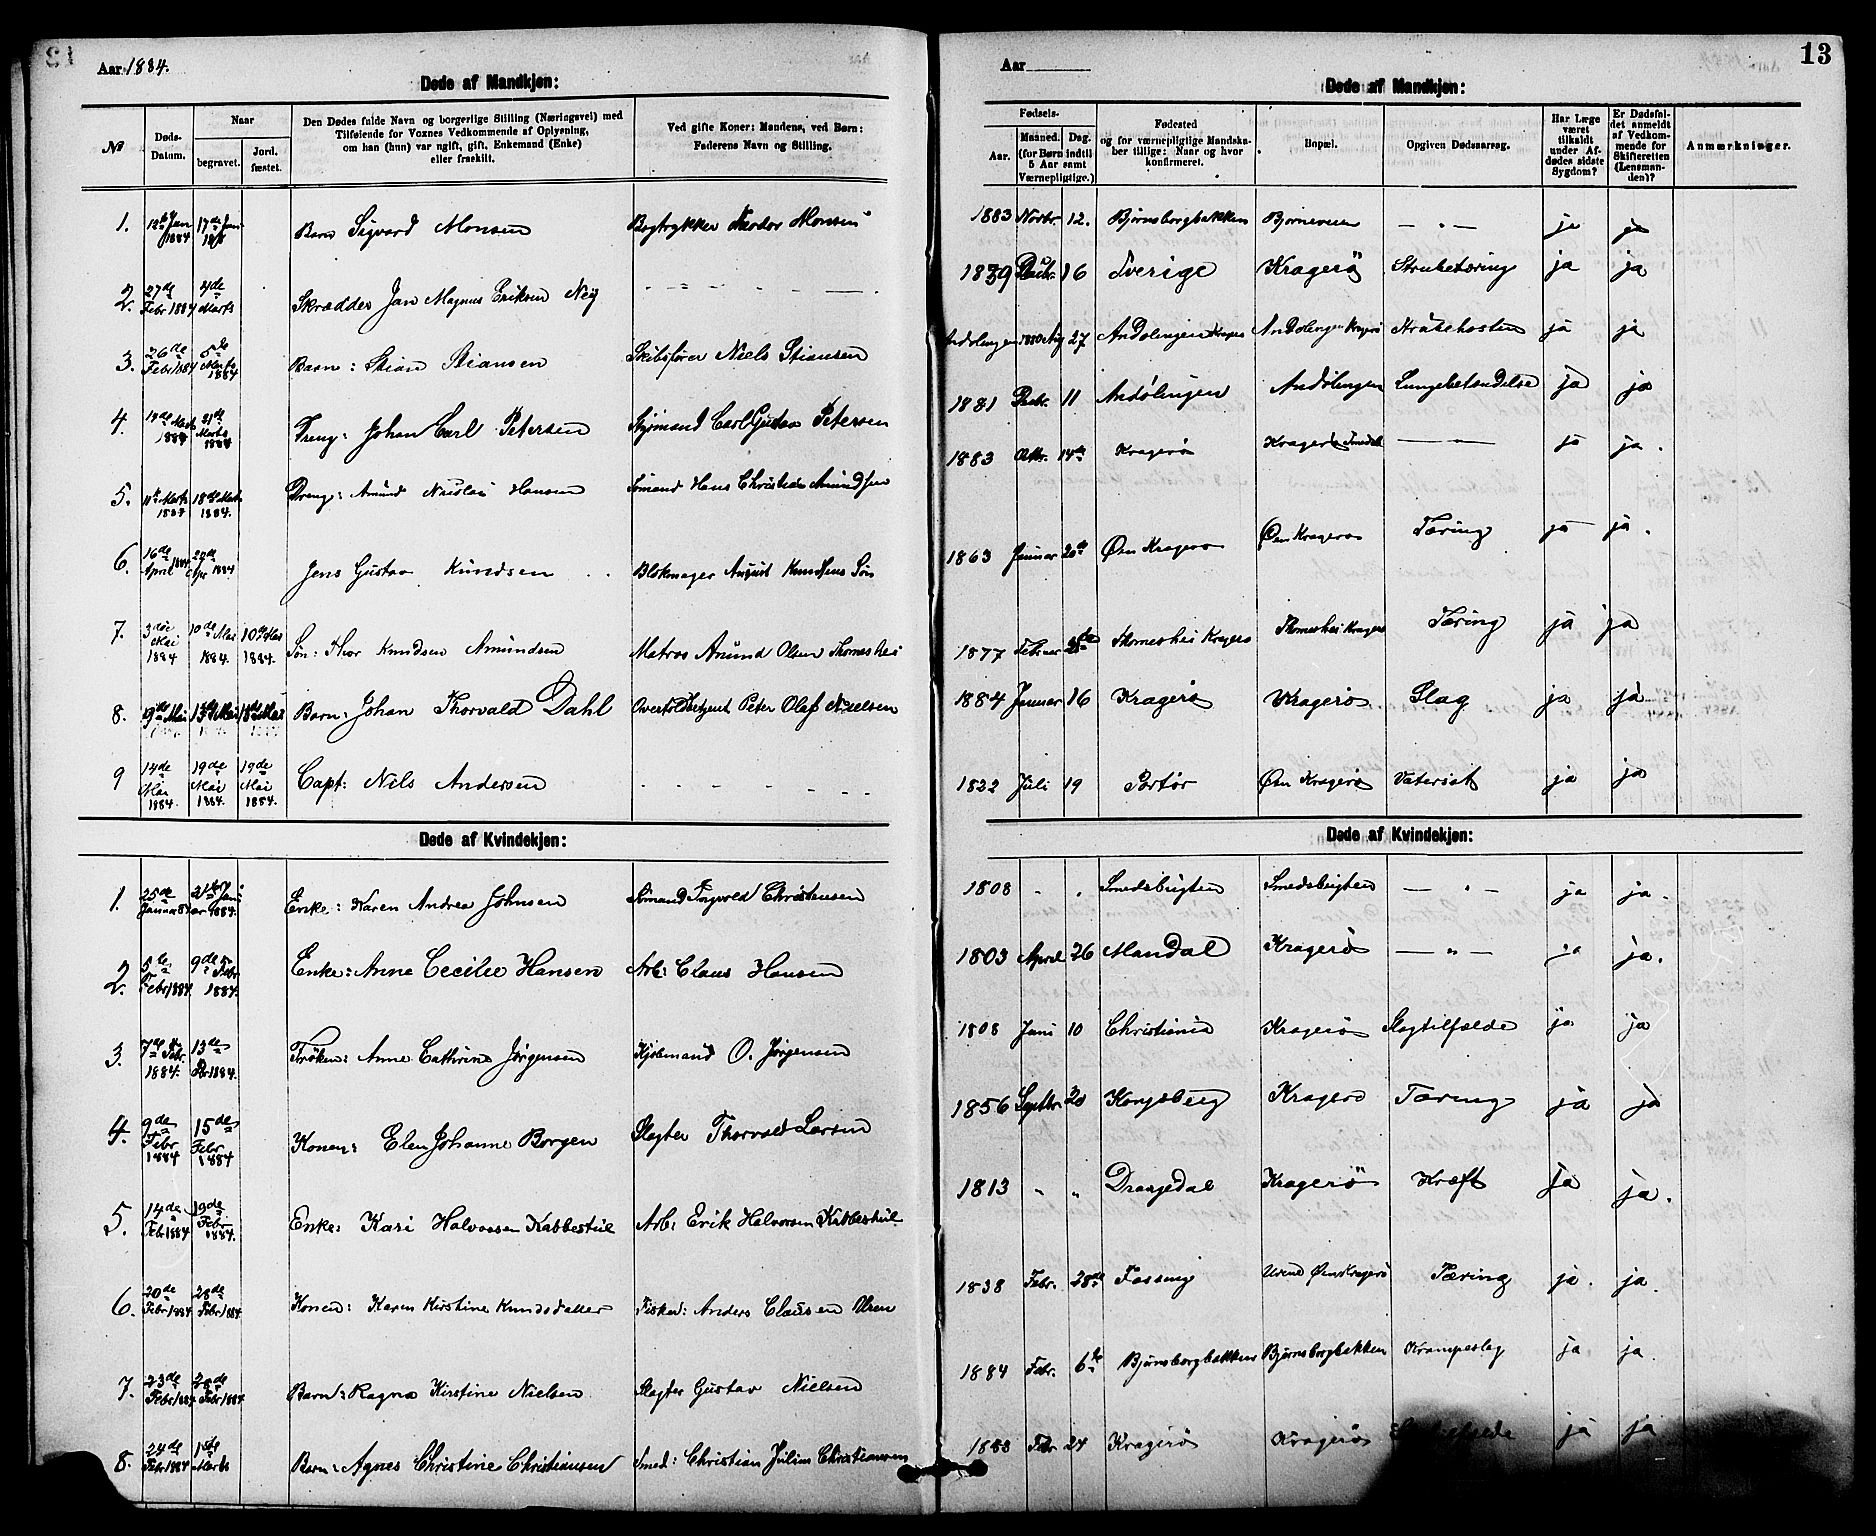 Aar 1884.
Døde af Mandkjøn:
No
Døds-Datum.
Naar
begravet.
Jord. fæstet.
Den Dødes fulde Navn og borgerlige Stilling (Næringsvei) med
Tilføiende for Voxnes Vedkommende af Oplysning,
om han (hun) var ugift, gift, Enkemand (Enke)
eller fraskilt.
Ved gifte Koner: Mandens, ved Børn:
Faderens Navn og Stilling.
1. Jan 1884 17de Barn Sigvard Monsen Bogtrykker Theodor Monsen
2. 27de Febr 1884 4de Marts Skrædder Jan Magnus Eriksen Neij
3. 26de Febr 1884 5de Marts 1884 Barn: Stian Stiansen Skibsfører Niels Stiansen
4. Marts 1884 Marts 1884 Dreng: Johan Carl Petersen Styrmand Carl Gustav Petersen
5. 11te Marts 1884 18de Marts 1884. Dreng: Amund Hansen Sømand Hans Christian Amundsen
6. 16de April 1884 Apr 1884 Jens Gustav Kundsen Blokmager August Knudsens Søn
7. 3die Mai 1884 10de Mai 1884. 10de Mai 1884. Søn: Thor Knudsen Amundsen Matros Amund Olsen Thomeshei
8. 9de Mai 13de Mai 18de Mai Barn: Johan Thorvald Dahl Overtoldbetjent Peter Olaf Nielsen
9 14de Mai 1884. 19de Mai 1884. 19de Mai 1884. Capt: Nils Andersen
Døde af Kvindekjøn:
1. 25de Januar 1884. Enke: Karen Andrea Johnsen Sømand Ingvald Christensen
2. 5te Febr 1884 9de Febr 1884. Enke: Anne Cecilie Hansen Arb: Claus Hansen
3. 7de Febr 1884. 13de Febr 1884. Frøken: Anne Cathrine Jørgensen Kjøbmand O. Jørgensen
4. 9de Febr 1884 15de Febr 1884 Konen: Elen Johanne Borgen Slagter Thorvald Larsen
5. 14de Febr 1884 19de Febr 1884. Enke: Kari Halvorsen Kabbestul Arb: Erik Halvorsen Kabbestul
6. 20de Febr 1884 28de Febr 1884 Konen: Karen Kirstine Knudsdatter Fisker: Anders Clausen Uren
7. 23de Febr 1884 28de Febr 1884 Barn: Ragna Kirstine Nielsen Slagter Gustav Nielsen
8. 24de Febr 1884 1ste Marts Barn: Agnes Christine Christiansen Smed: Christian Julius Christiansen
13
Aar
Døde af Mandkjøn:
Fødsels-
Aar.
Maaned. (for Børn indtil 5 Aar samt Værnepligtige.)
Dag.
Fødested
og for værnepligtige Mandskaber tillige: Naar og hvor konfirmeret.
Bopæl.
Opgiven Dødsaarsag.
Har Læge været tilkaldt under Afdødes sidste Sygdom?
Er Dødsfaldet anmeldt af Vedkommende for Skifteretten (Lensmanden)?
Anmærkninger.
1883 Novbr. 12. Bjørnsborgbakken Bjørneveien — " — ja ja
1839 16 Sverige Kragerø Strubetæring ja ja
Andølingen 1880 Aug 27 Andølingen Kragerø Andølingen Kragerø Strubehosten ja ja
1881 Decbr. 11 Andølingen Andølingen Lungebetændelse ja ja
1883 Oktbr. 14de Kragerø Kragerø — " — ja ja.
1863 Januar 20de Øen Kragerø Øen Kragerø Tæring ja ja.
1877 Februar Thomeshei Kragerø Thomeshei Kragerø Tæring ja ja
1884 Januar 16 Kragerø Kragerø Slag ja ja
1822 Juli 19 Portør Øen Kragerø Vatersot ja ja
Døde af Kvindekjøn:
1808 " " Smedsbugten Smedsbugten — " — ja ja.
1803 April 26 Mandal Kragerø — " — ja ja.
1808 Juni 10 Christiania Kragerø Slagtilfælde ja ja
1856 Septbr. 20 Kongsberg Kragerø Tæring ja ja
1813 " " Drangedal Kragerø Kræft ja ja.
1838 Febr. 28de Fossing Urene Øen Kragerø Tæring ja. ja.
1884 Febr. 6te Bjørnsborgbakken Bjørnsborgbakken Krampeslag ja ja.
1883 Febr 24 Kragerø Kragerø ja ja